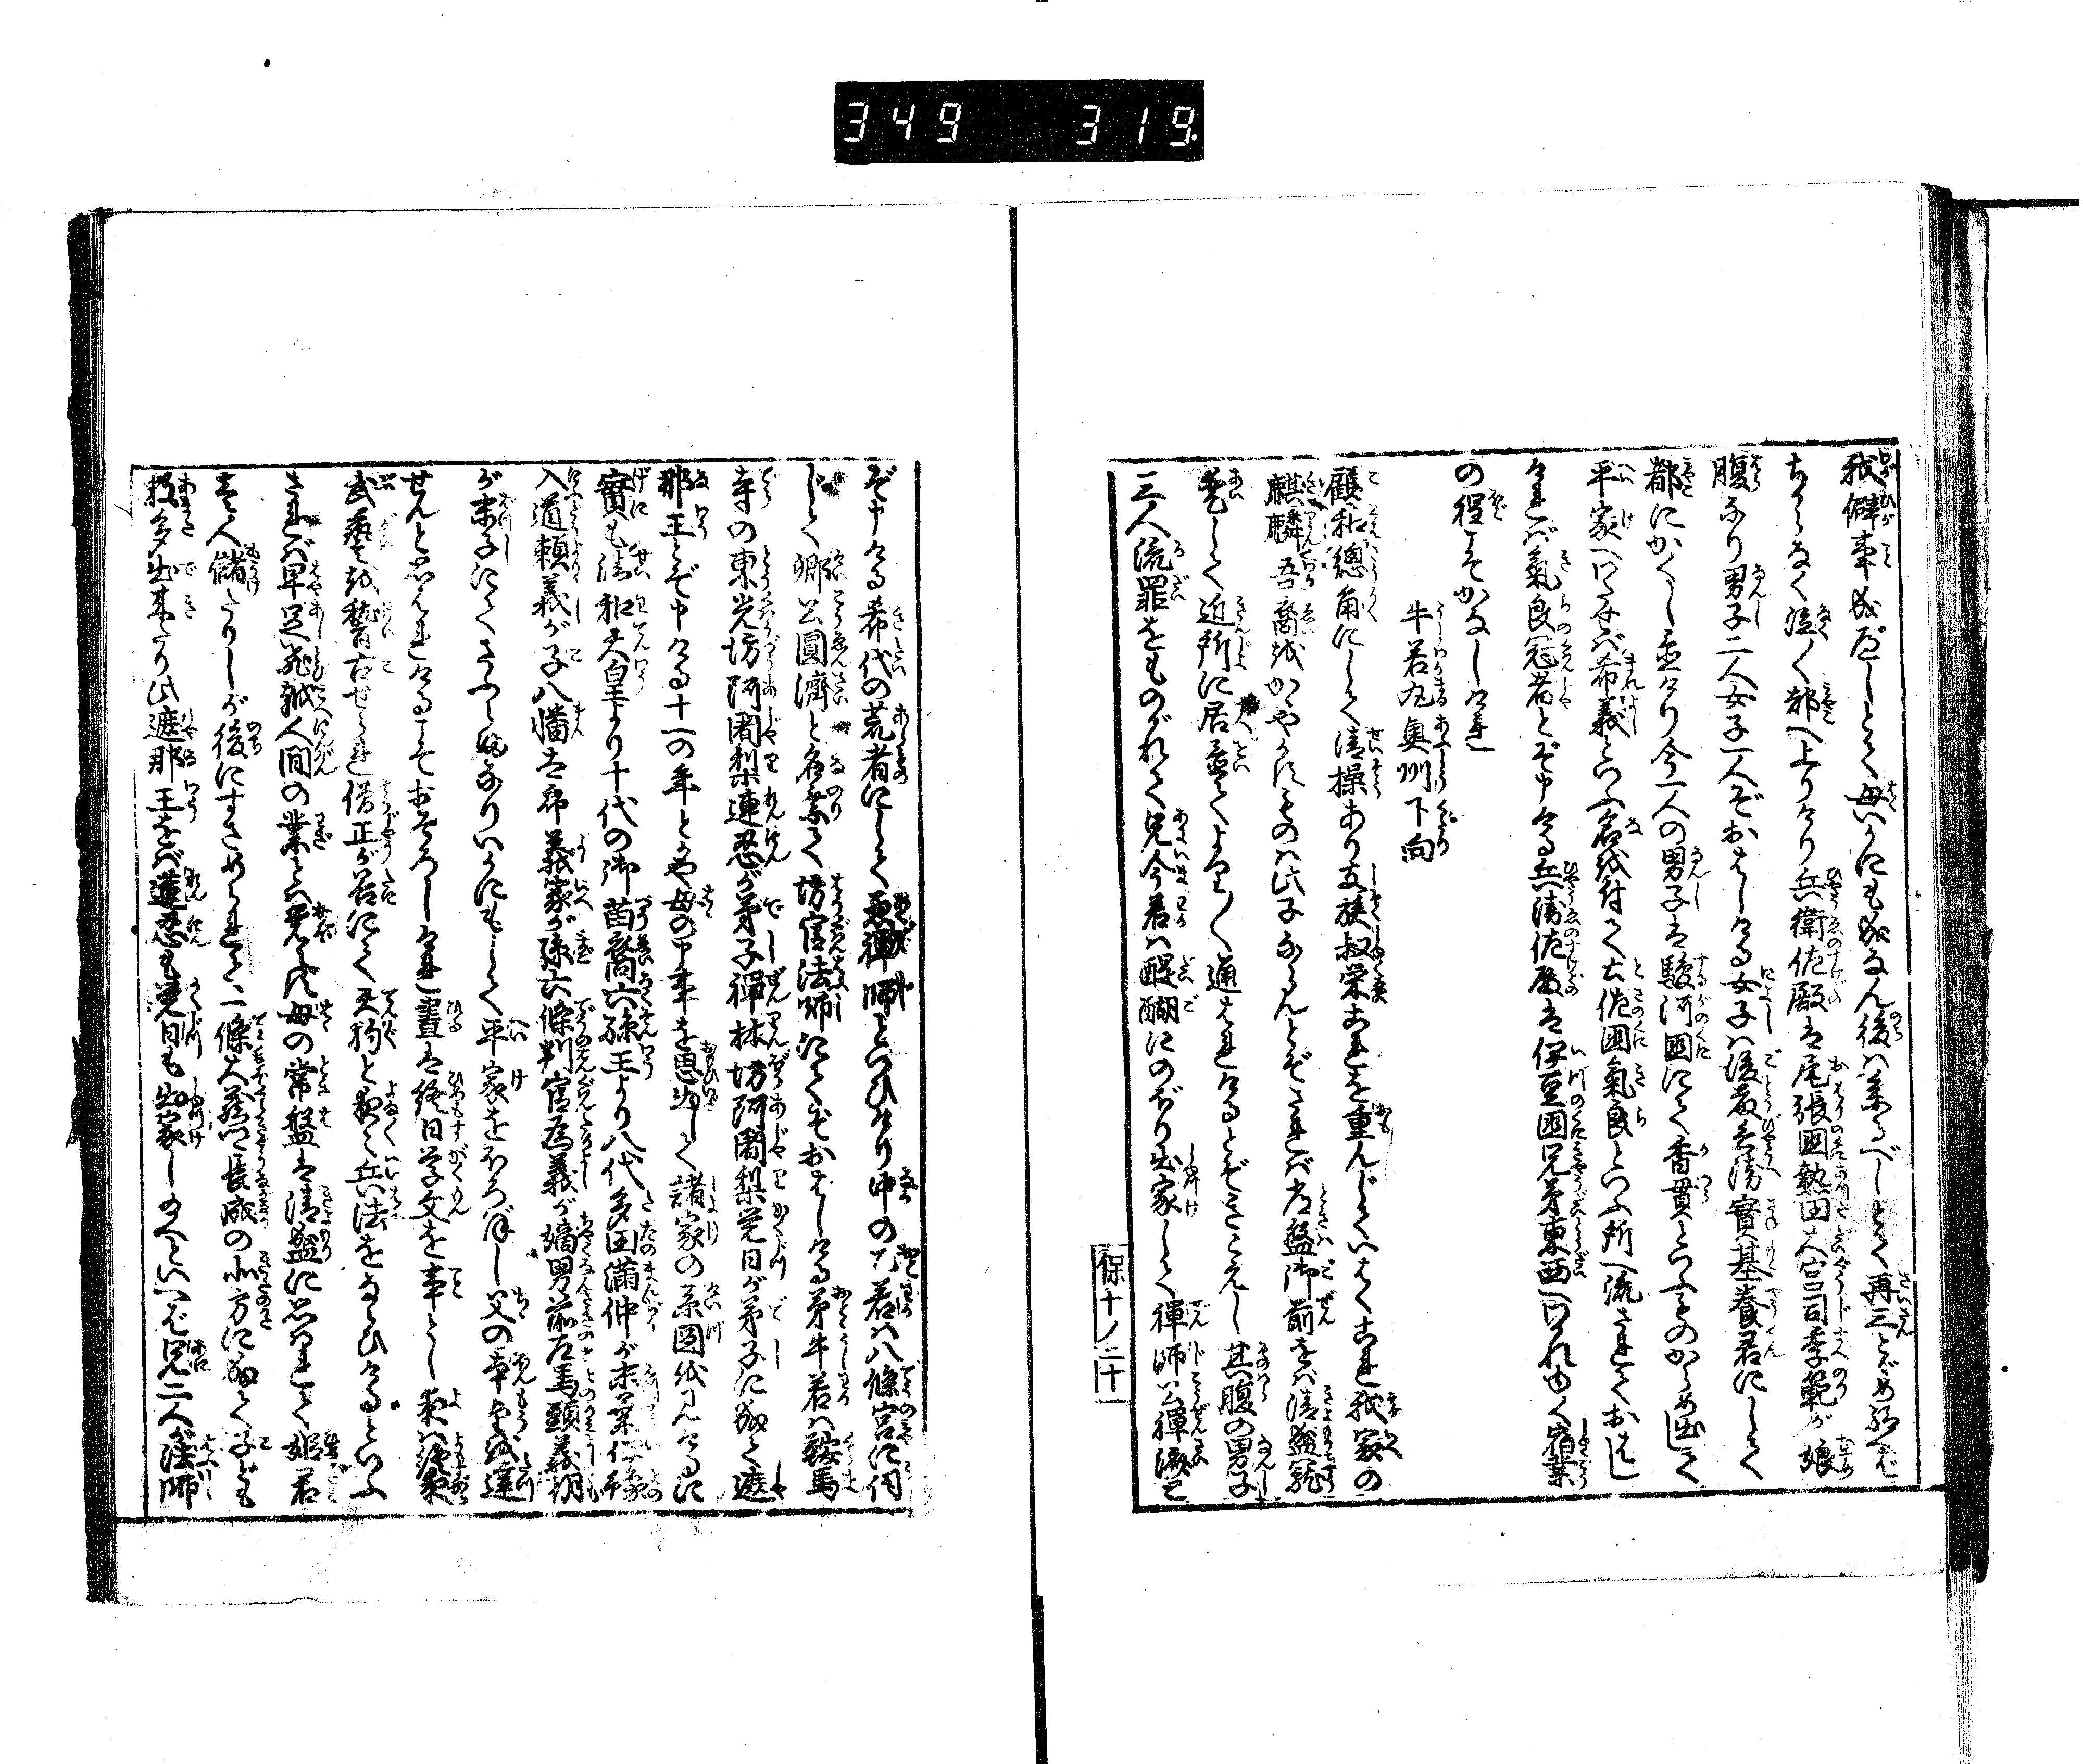 349 319.
我僻事成べしとて母いかにも成なん後は参るべしとて再三とゞめ給へば
ちからなく泣く都へ上りけり兵衛佐殿は尾張国熱田大宮司季範が娘
腹なり男子二人女子一人ぞおはしける女子は後藤兵衛實基養君にして
都にかくし置けり今一人の男子は駿河國にて香貫といふものからめ出して
平家へわたせば希義といふ名を付て土佐國氣良といふ所へ流されておはし
ければ氣良冠者とぞ申ける兵衛佐殿は伊豆國兄弟東西へわかれゆく宿業
の程こそかなしけれ
牛若丸奥州下向
顧和總角にして清操あり支族叔栄これを重んじていはくこれ我家の
麒麟吾裔をかゝやかすものは此子ならんとぞされば常盤御前をは清盛寵
愛して近所に居置てより〳〵通はれけるとぞきこえし其腹の男子
三人流罪をものがれて兄今若は醍醐にのぼり出家して禅師公禅濟と
保十ノ二十一
ぞ申ける希代の荒者にして悪禪師といひけり中の乙若は八條宮に伺
じて卿公圓濟と名乗て坊官法師にてぞおはしける弟牛若は鞍馬
寺の東光坊阿闍梨蓮忍が弟子禪林坊阿闍梨覚日が弟子に成て遮
那王とぞ申ける十一の年とかや母の申事を思出して諸家の系図を見けるに
實も清和天皇より十代の御苗裔六孫王より八代多田満仲が末葉伊豫
入道頼義が子八幡太郎義家が孫六條判官為義が嫡男前左馬頭義朝
が末子にてさふらふなりいかにもして平家をほろぼし父の本望を達
せんと思はれけるこそおそろしけれ晝は終日学文を事とし夜は終夜
武藝を稽古せられ僧正が谷にて天狗と夜々兵法をならひけるといふ
されば早足飛越人間の業とは覚えず母の常盤は清盛に思はれて姫君
一人儲たりしが後にすさめられて一條大蔵卿長成の北方に成て子ども
数多出来たり此遮那王をば蓮忍も覚日も出家し給へといへば兄二人が法師